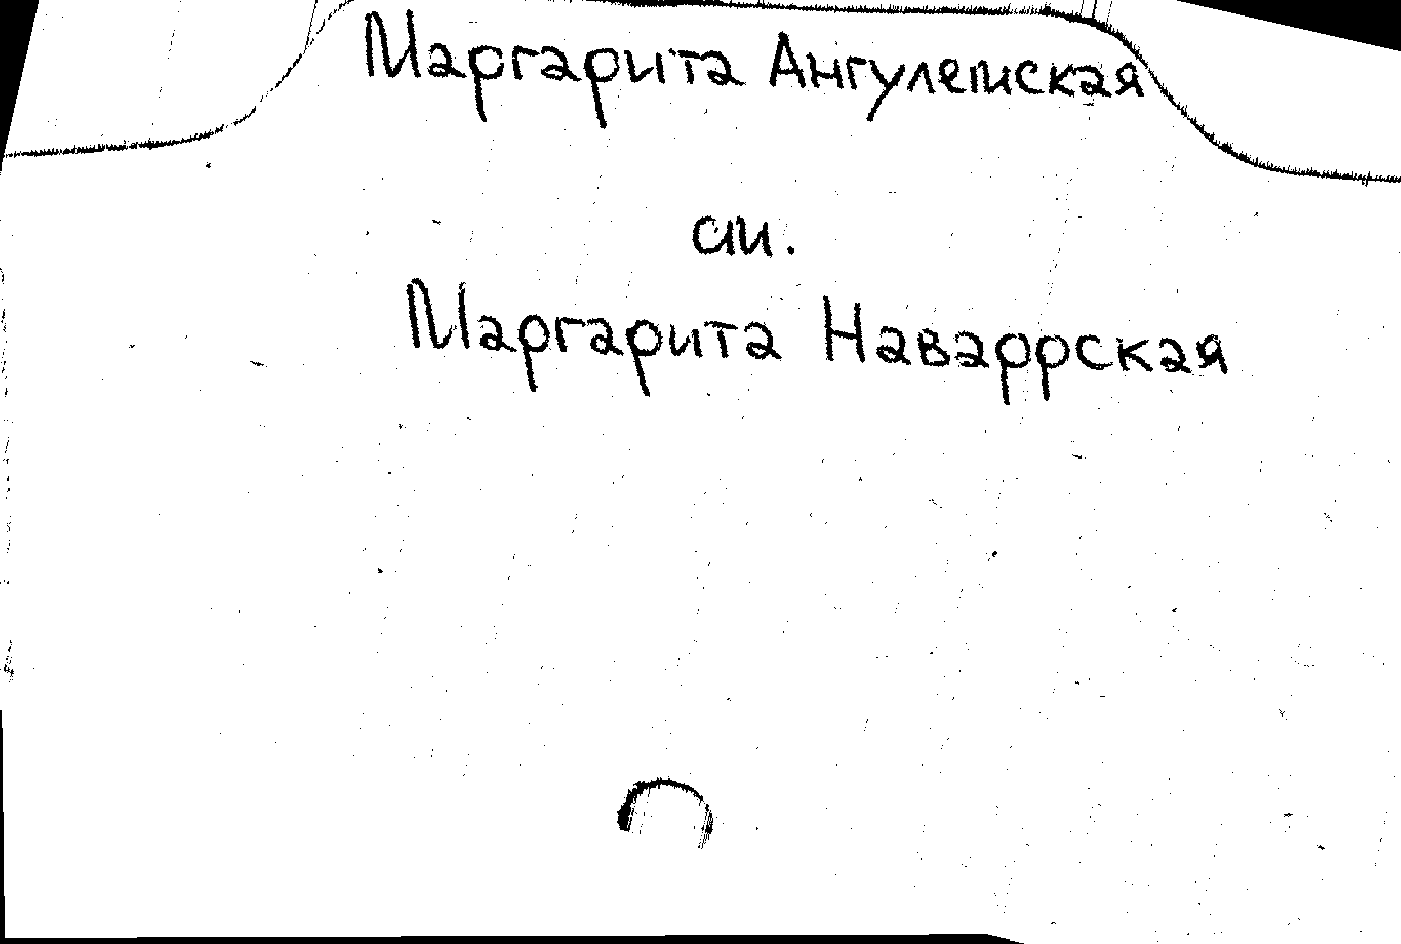 Маргарита Ангулемская
см.
Маргарита Наваррская